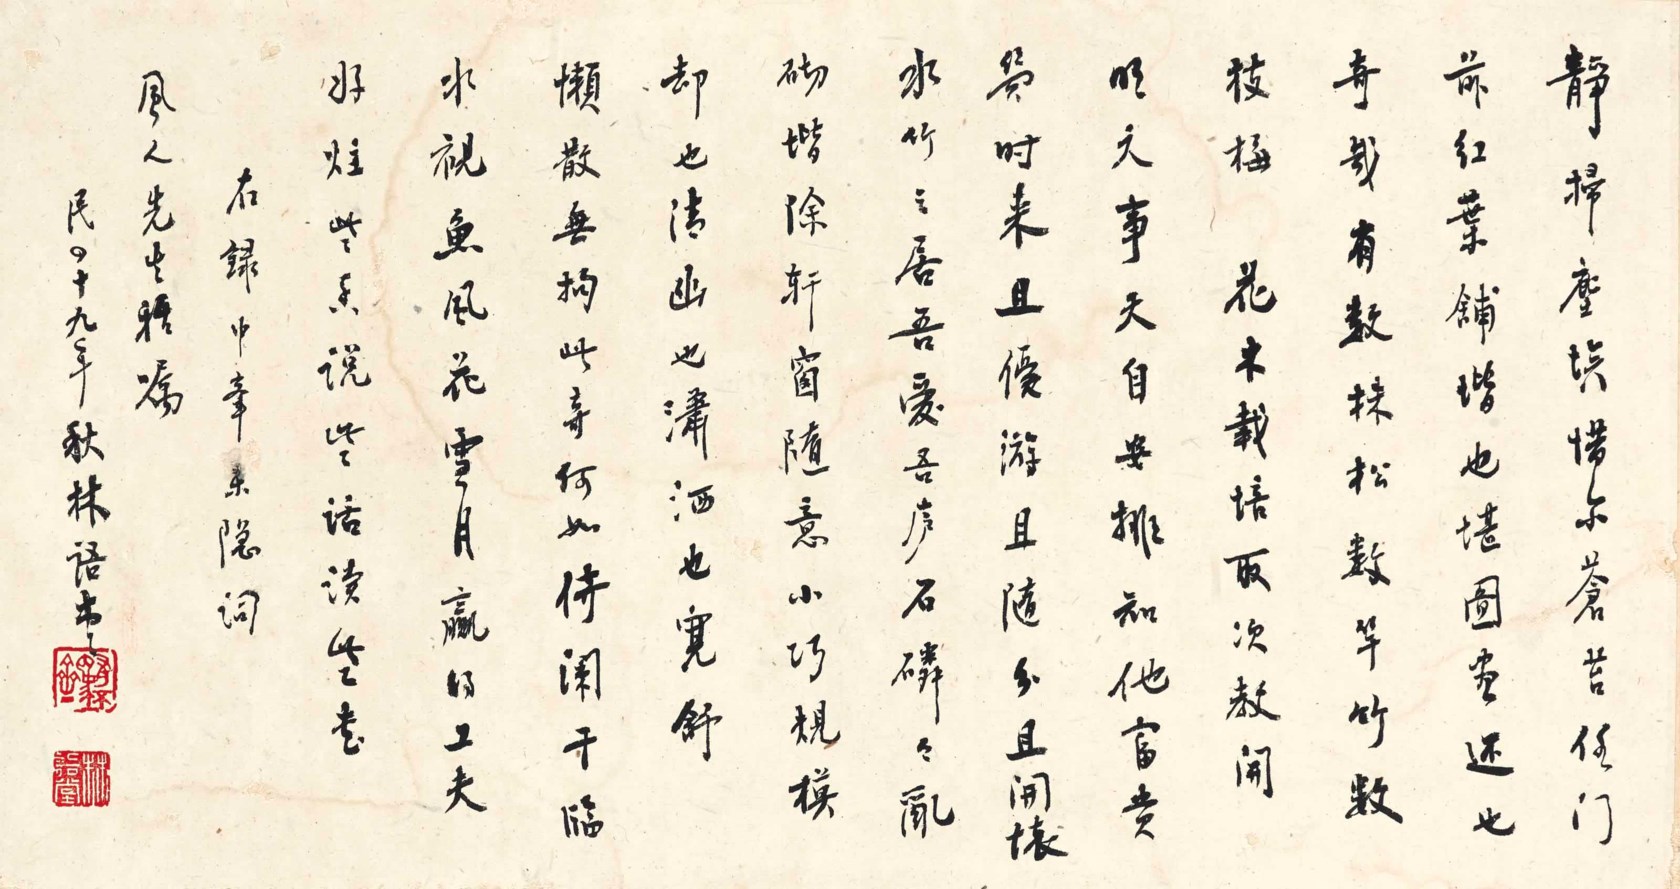 靜掃塵埃惜尔蒼苔任门
前紅葉鋪堦也堪圖畫还也
奇哉有數株松數竿竹數
枝梅 花木栽培取次教開
明天事天自安排知他富貴
幾时来且優游且隨分且開懷
水竹之居吾愛吾庐石磷々亂
砌堦除軒窗隨意小巧規模
却也清幽也瀟洒也寬舒
懶散無拘此等何如倚闌干臨
水觀魚風花雪月贏得工夫
好炷些香說些話讀些书
右録中峯樂隐詞
風人先生雅嘱
民四十九年秋林語堂
林語堂